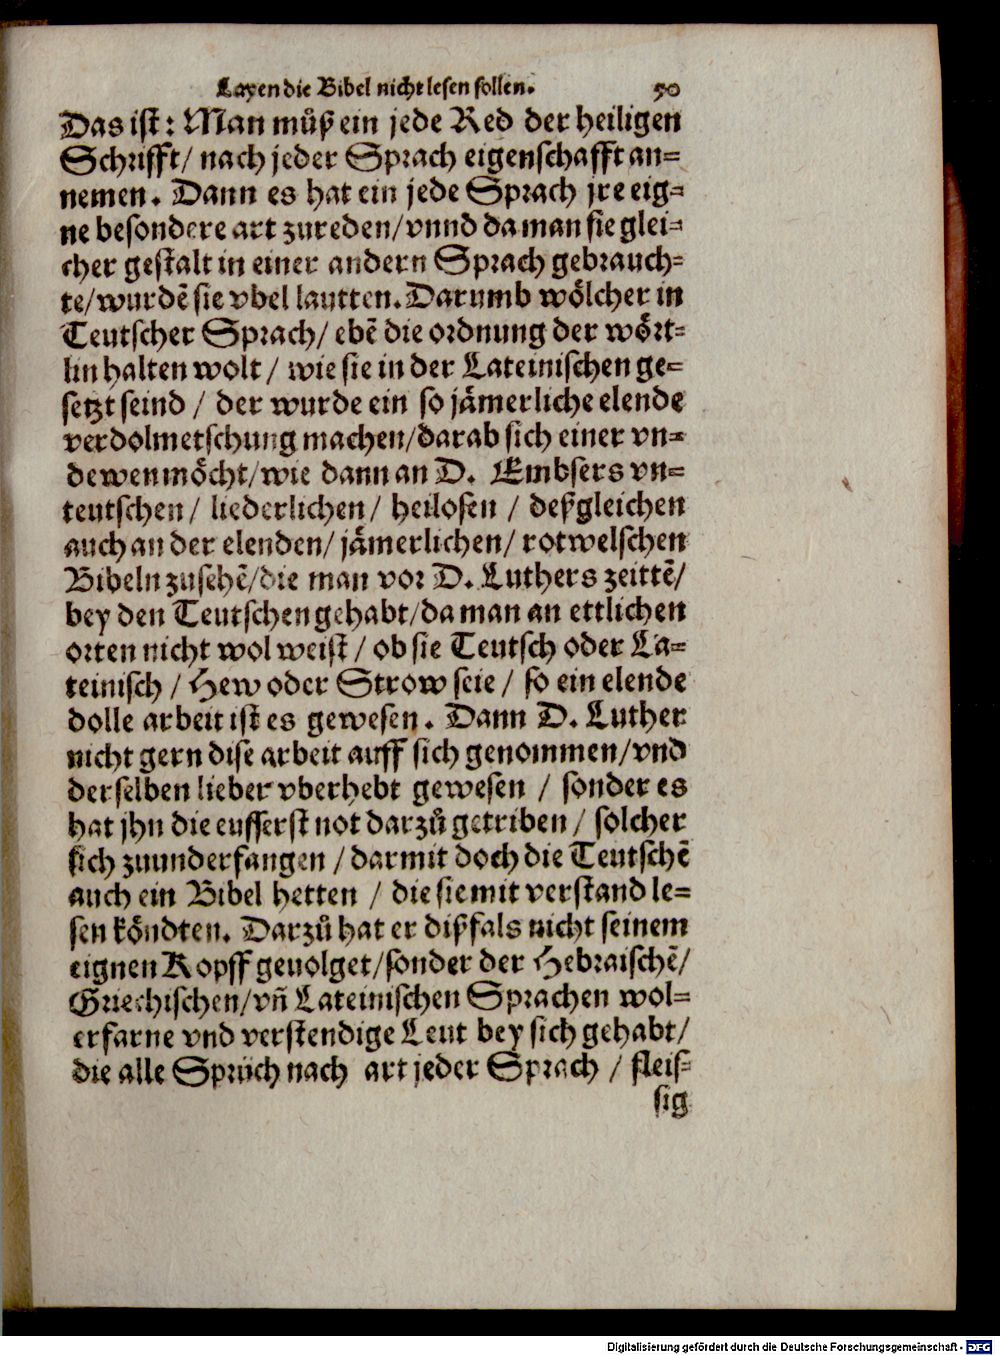 Layen die Bibel nicht lesen sollen. 50
Das ist: Man můß ein jede Red der heiligen
Schrifft/ nach jeder Sprach eigenschafft an=
nemen. Dann es hat ein jede Sprach jre eig=
ne besondere art zureden/ vnnd da man sie glei=
cher gestalt in einer andern Sprach gebrauch=
te/ wurdẽ sie vbel lautten. Darumb woͤlcher in
Teutscher Sprach/ ebẽ die ordnung der woͤrt=
lin halten wolt / wie sie in der Lateinischen ge=
setzt seind / der wurde ein so jaͤmerliche elende
verdolmetschung machen/ darab sich einer vn=
dewen moͤcht/ wie dann an D. Embsers vn=
teutschen/ liederlichen/ heilosen / deßgleichen
auch an der elenden/ jaͤmerlichen/ rotwelschen
Bibeln zusehẽ/ die man vor D. Luthers zeittẽ/
bey den Teutschen gehabt/ da man an ettlichen
orten nicht wol weist / ob sie Teutsch oder La=
teinisch / Hew oder Strow seie / so ein elende
dolle arbeit ist es gewesen. Dann D. Luther
nicht gern dise arbeit auff sich genommen/ vnd
derselben lieber vberhebt gewesen / sonder es
hat jhn die eusserst not darzů getriben / solcher
sich zuunderfangen / darmit doch die Teutschẽ
auch ein Bibel hetten / die sie mit verstand le=
sen koͤndten. Darzů hat er dißfals nicht seinem
eignen Kopff geuolget/ sonder der Hebraischẽ/
Griechischen/ vñ Lateinischen Sprachen wol=
erfarne vnd verstendige Leut bey sich gehabt/
die alle Sprüch nach art jeder Sprach / fleis=
sig
Digitalisierung gefördert durch die Deutsche Forschungsgemeinschaft - DFG